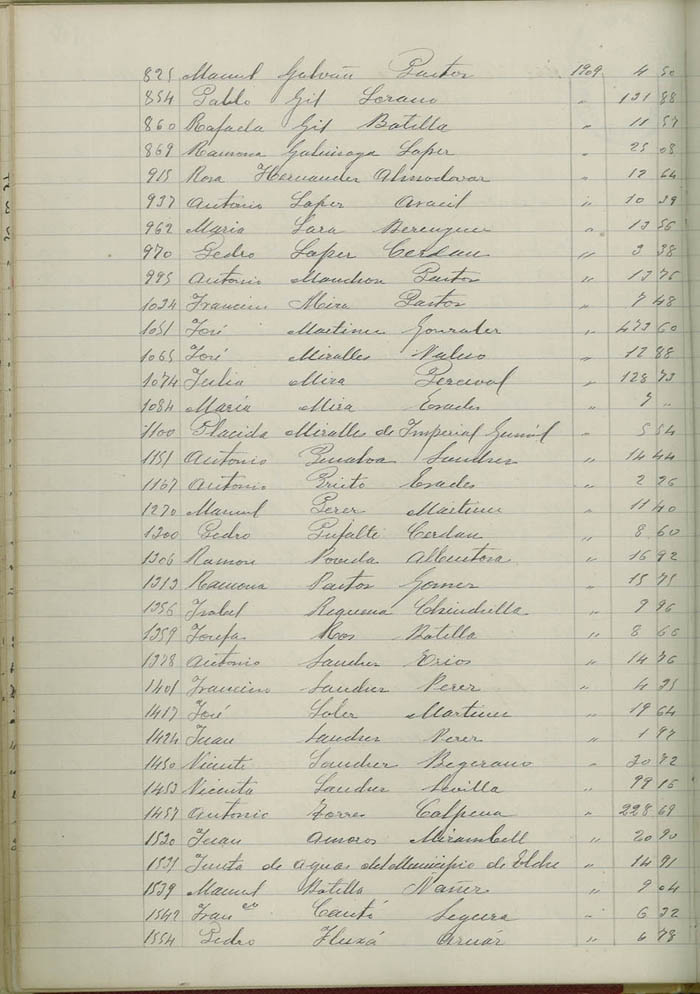 825 Manuel Galvañ Pastor 1909 4 50
854 Pablo Gil Lozano " 131 88
860 Rafaela Gil Botella " 11 57
869 Ramona Lopez " 25 08
915 Rosa Hernandez Almodovar " 12 64
937 Antonio Lopez Aracil " 10 39
962 Maria Lara Berenguer " 13 56
970 Pedro Lopez Cerdan " 3 38
995 Antonio Manchon Pastor " 13 75
1034 Francisco Mira Pastor " 7 48
1051 José Martinez Gonzalez " 473 60
1065 José Miralles " 12 88
1074 Julia Mira Perceval " 128 73
1084 María Mira " 7 "
1100 Placida Miralles de Imperial " 5 54
1151 Antonio Penalva Sanchez " 14 44
1167 Antonio Prieto " 2 26
1270 Manuel Perez Martinez " 11 40
1300 Pedro Pujalte Cerdan " 8 60
1306 Ramon Poveda " 16 92
1313 Ramona Pastor Gomez " 15 75
1356 Isabel Requena Chinchilla " 9 96
1359 Josefa Ros Botella " 8 66
1378 Antonio Sanchez " 14 76
1401 Francisco Sanchez Perez " 4 35
1417 José Soler Martinez " 19 64
1424 Juan Sanchez Perez " 1 97
1450 Vicente Sanchez Begerano " 30 72
1453 Vicenta Sanchez Sevilla " 99 15
1457 Antonio Torres Calpena " 228 69
1520 Juan Amoros Mirambell " 20 90
1531 Junta de aguas del Municipio de Elche " 14 91
1539 Manuel Botella Nañez " 9 04
1542 Fran.co Cantó Segura " 6 32
1554 Pedro Fluxá Aznár " 6 78